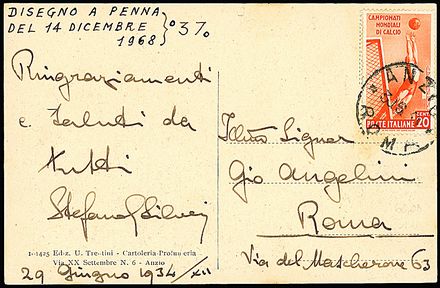 DISEGNO A PENNA
DEL 14 DICEMBRE
1968
37
CAMPIONATI
MONDIALI
DI CALCIO
CENT.
20
POSTE ITALIANE
ANZIO
ROMA
Ringraziamenti
e saluti da
tutti
Stefano
Gio Angelini
Roma
Via del Mascherone 63
1-1425 Ediz. U. Trentini - Cartoleria-Profumeria
Via XX Settembre N. 6 - Anzio
29 Giugno 1934/XII